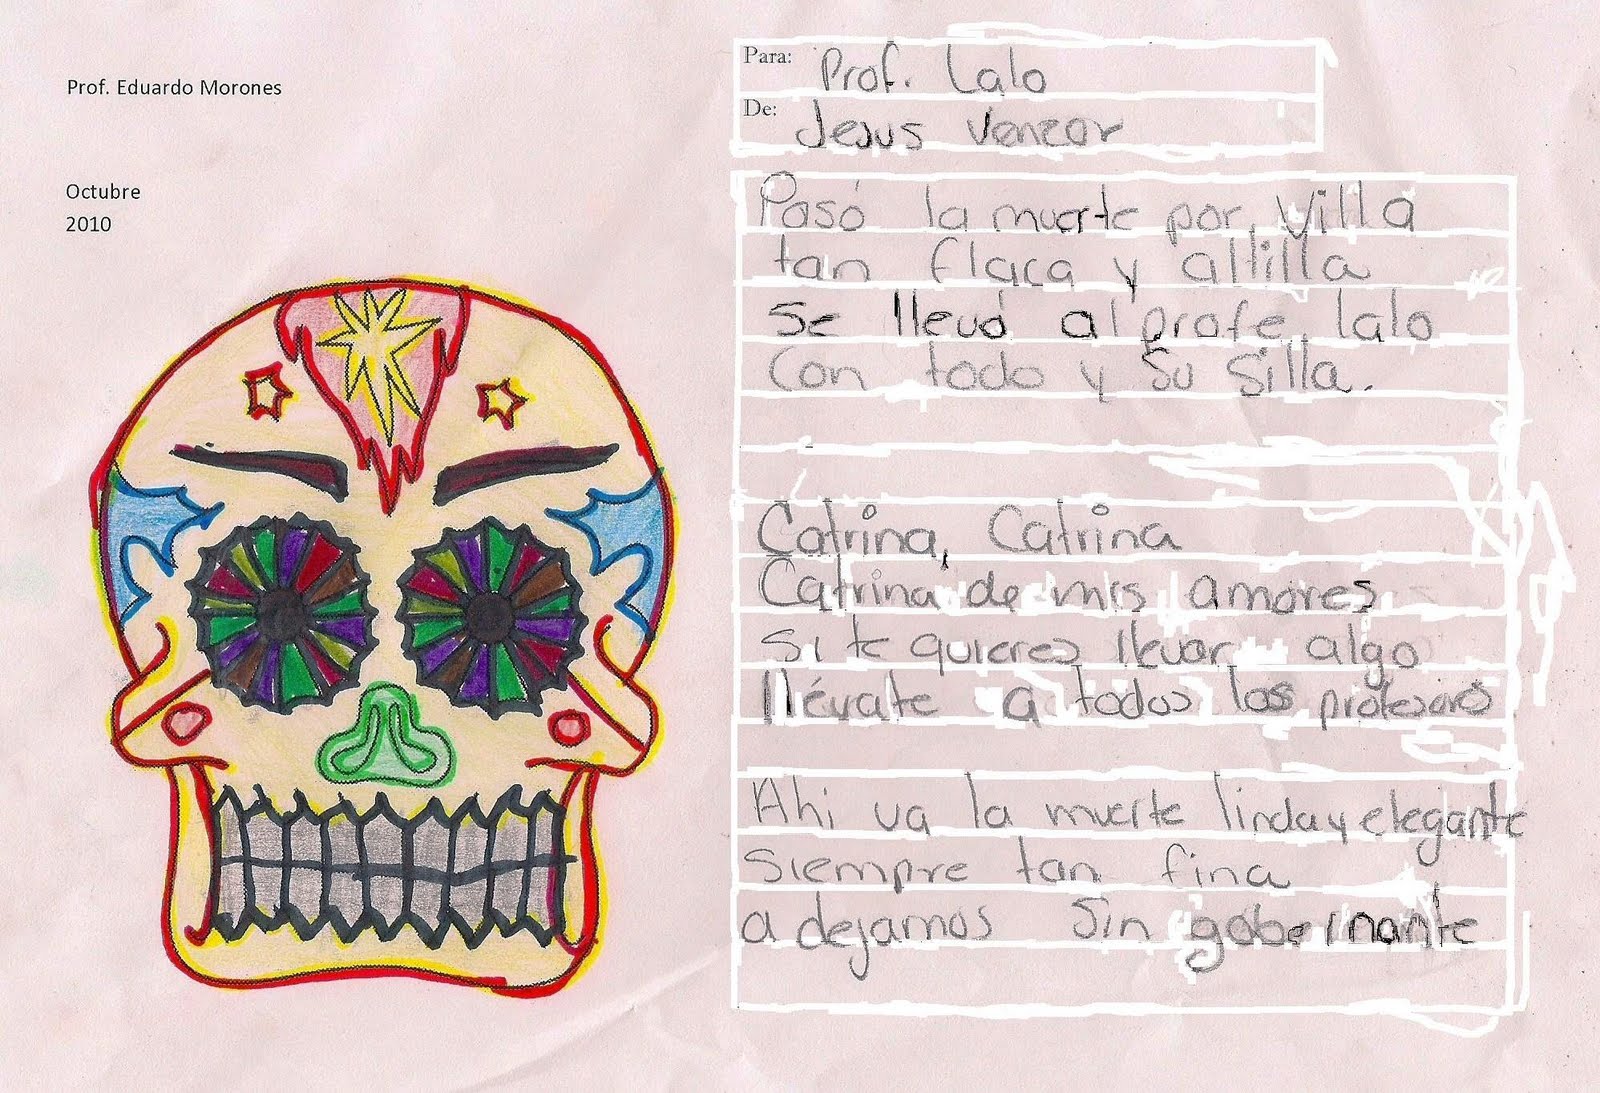 Prof. Eduardo Morones
Octubre
2010
Para: Prof. Lalo
De: Jesus Venzor
Pasó la muerte por Villa
tan flaca y altilla
se llevó al profe lalo
con todo y su silla.
Catrina, Catrina
Catrina de mis amores
si te quieres llevar algo
llévate a todos los profesores
Ahi va la muerte linda y elegante
siempre tan fina
a dejamos sin gobernante